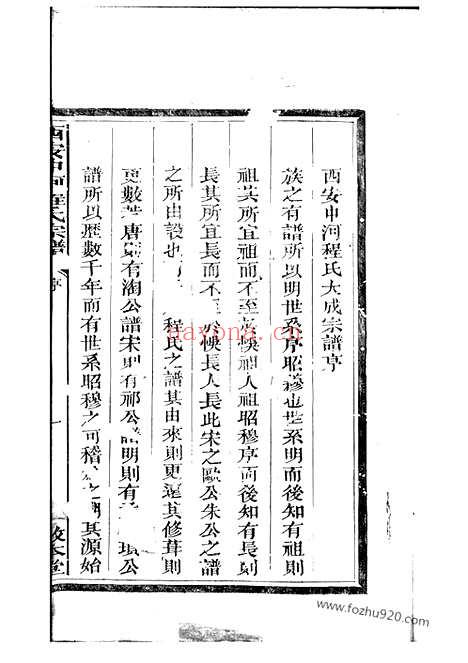 西安中河程氏大成宗譜序
族之有譜所以明世系序昭穆也世系明而後知有祖則
祖其所宜祖而不至悞祖人祖昭穆序而後知有長則
長其所宜長而不至悞長人長此宋之歐公朱公之譜
之所由設也 程氏之譜其由來則更遠其修葺則
更數 唐則有淘公譜宋則有祁公 明則有 公
譜所以歷數千年而有世系昭穆之可稽 其源始
西安中河程氏宗譜
序
一
敘本堂
nayona.cn
www.fozhu920.com